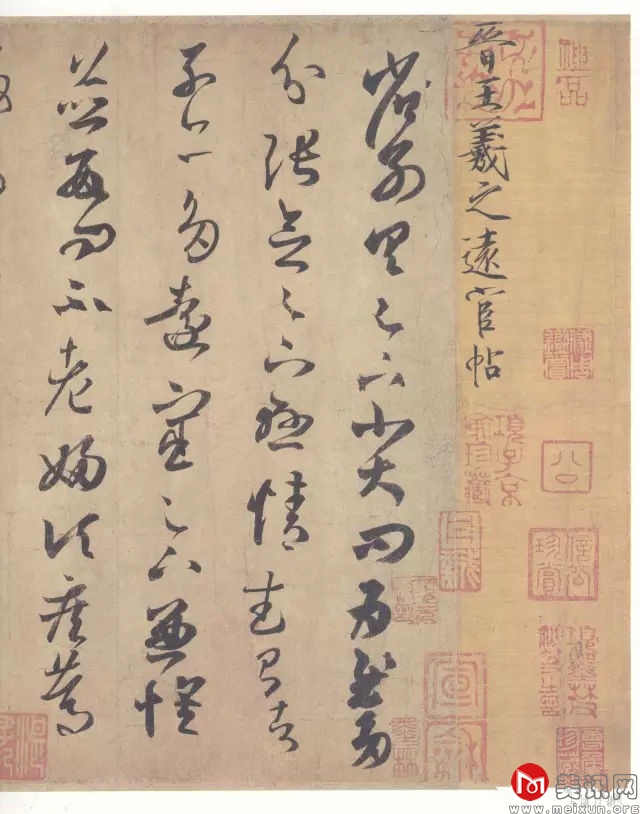 神品
晉王羲之遠宦帖
省別具足下小大問為慰多
分張念足下懸情武昌諸
子亦多遠宦足下兼懷
並數問不老婦頃疾篤
項子京家珍藏
信公珍賞
美讯网
www.meixun.org